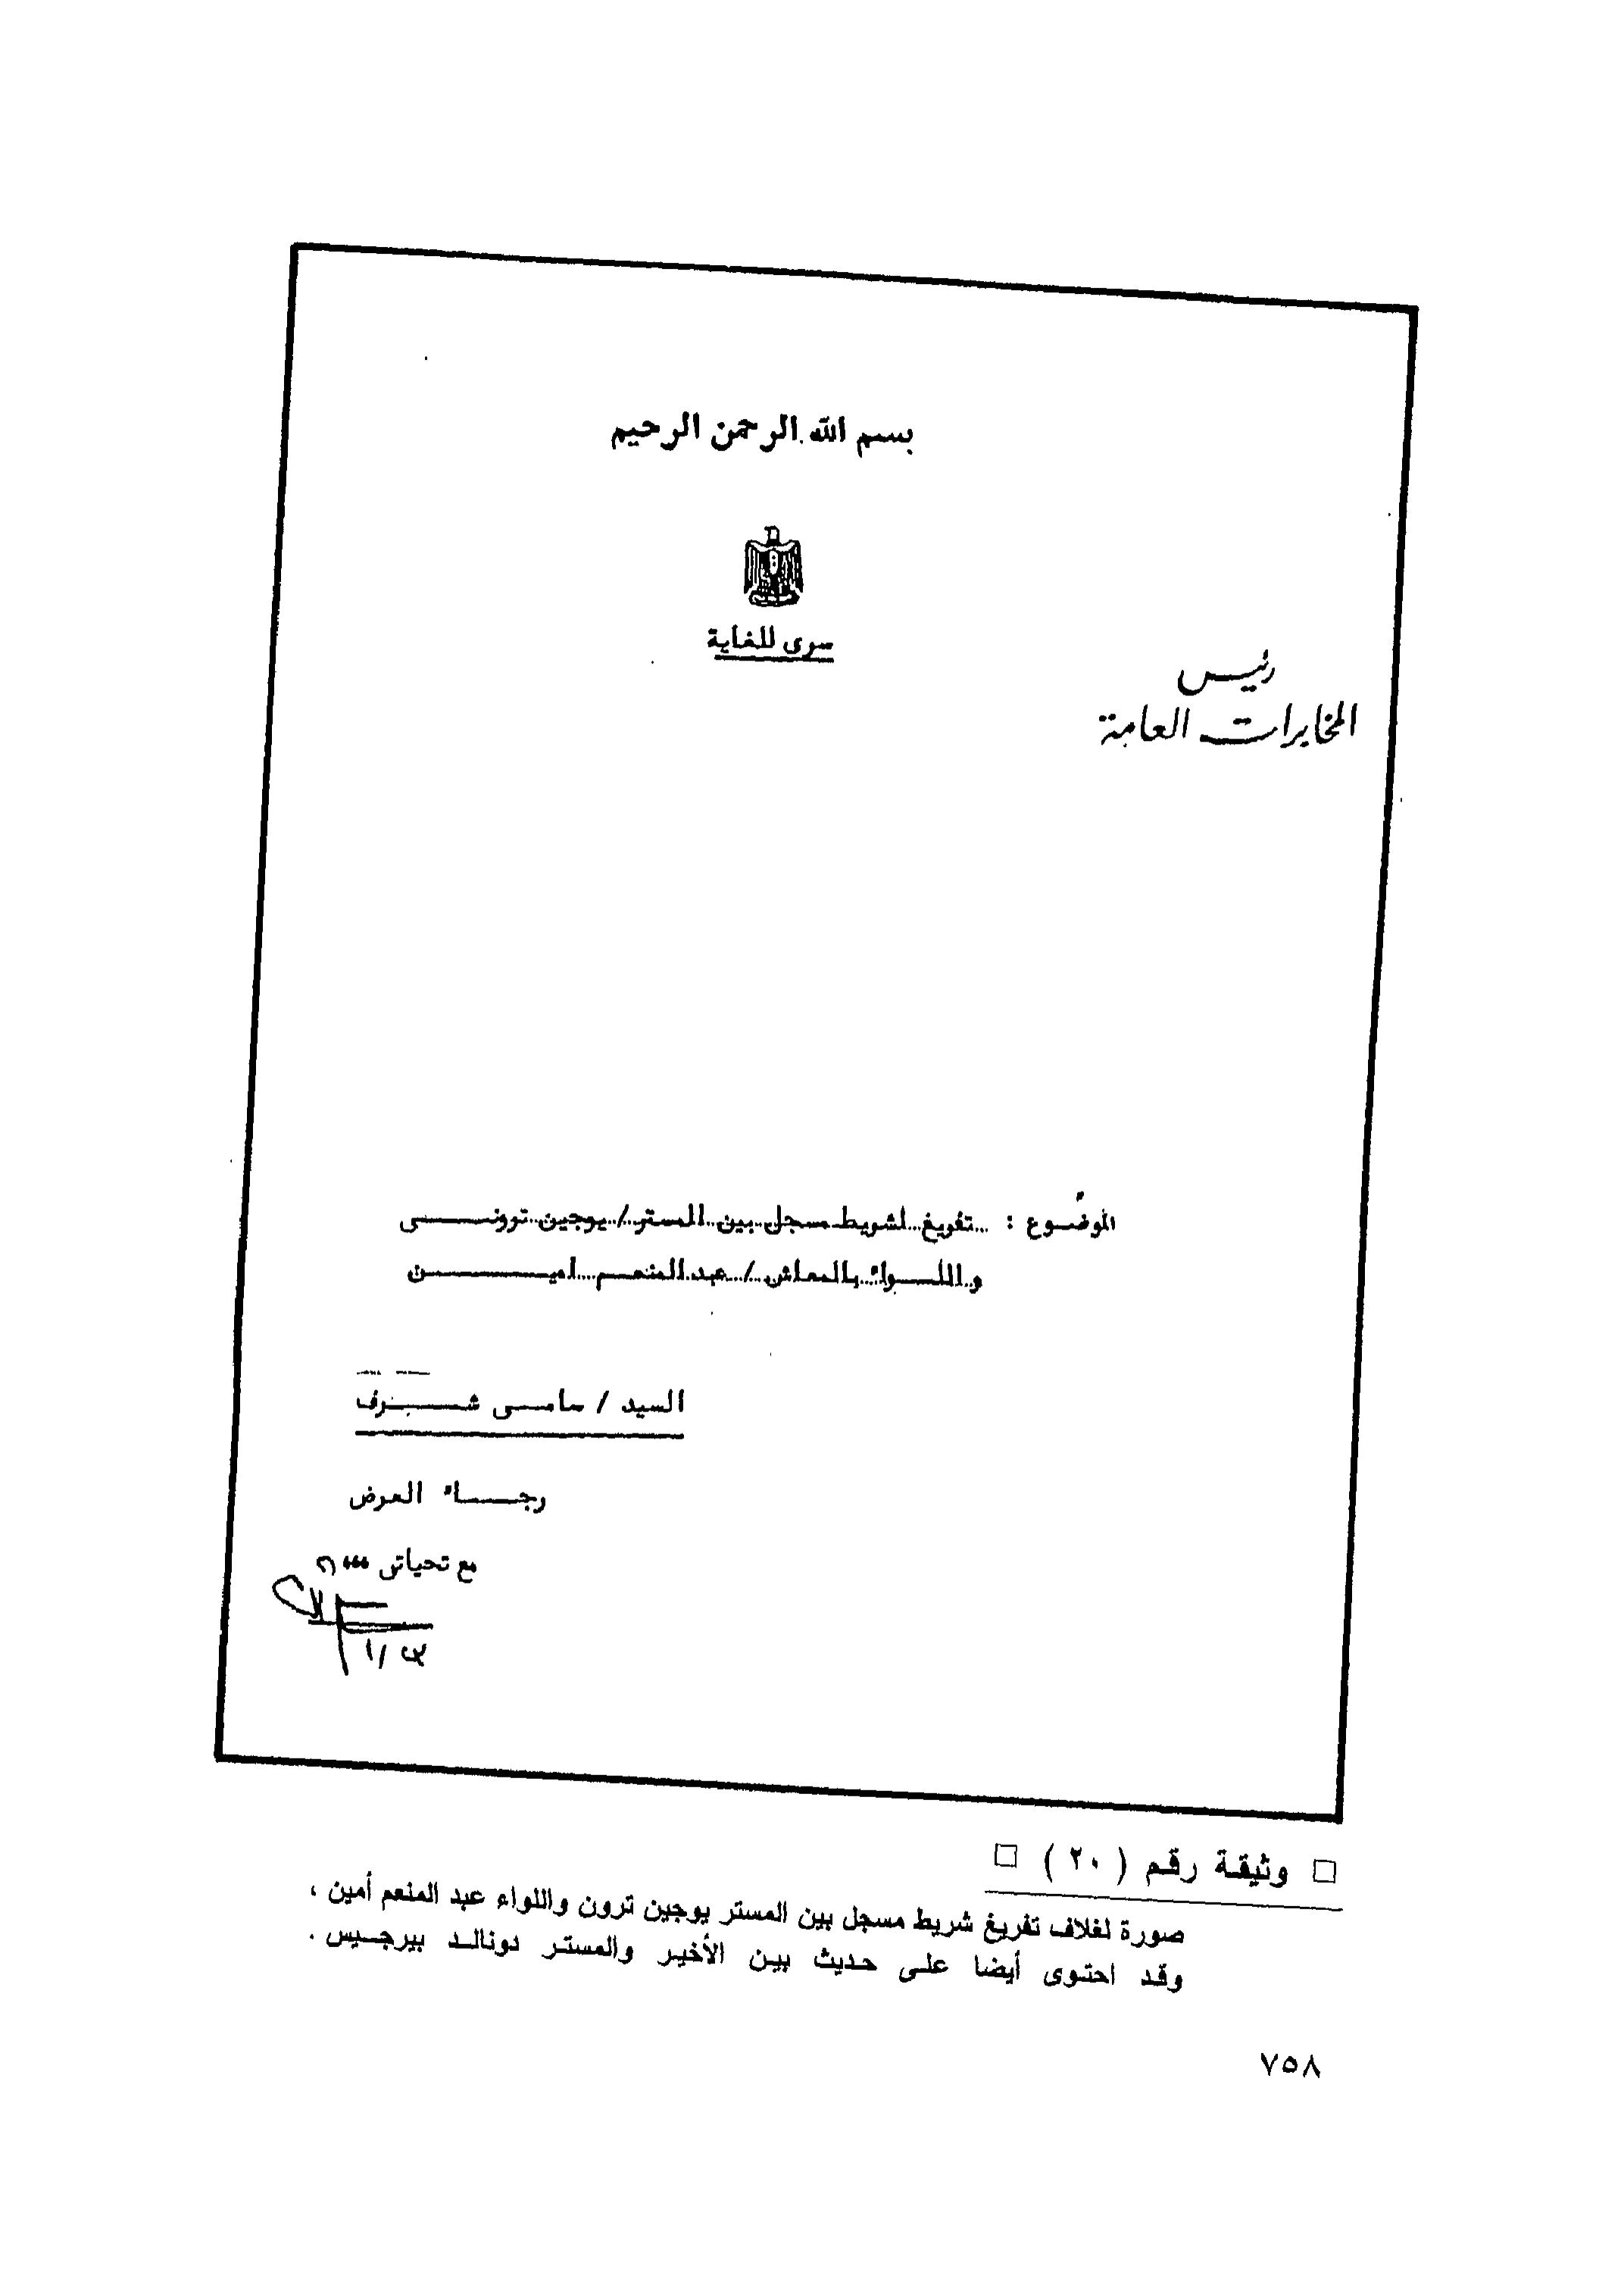 بسم الله الرحمن الرحيم
سرى للغاية
رئيس
المخابرات العامة
الموضوع : تفريغ لشريط مسجل بين المستر / يوجين ترونى
واللواء بالمعاش / عبد المنعم امين
السيد / سامى شرف
رجاء العرض
مع تحياتى ،،،
□ وثيقة رقم ( ٢٠ ) □
صورة لغلاف تفريغ شريط مسجل بين المستر يوجين ترون واللواء عبد المنعم أمين ،
وقد احتوى أيضا على حديث بين الأخير والمستر دونالد بيرجيس .
٧٥٨